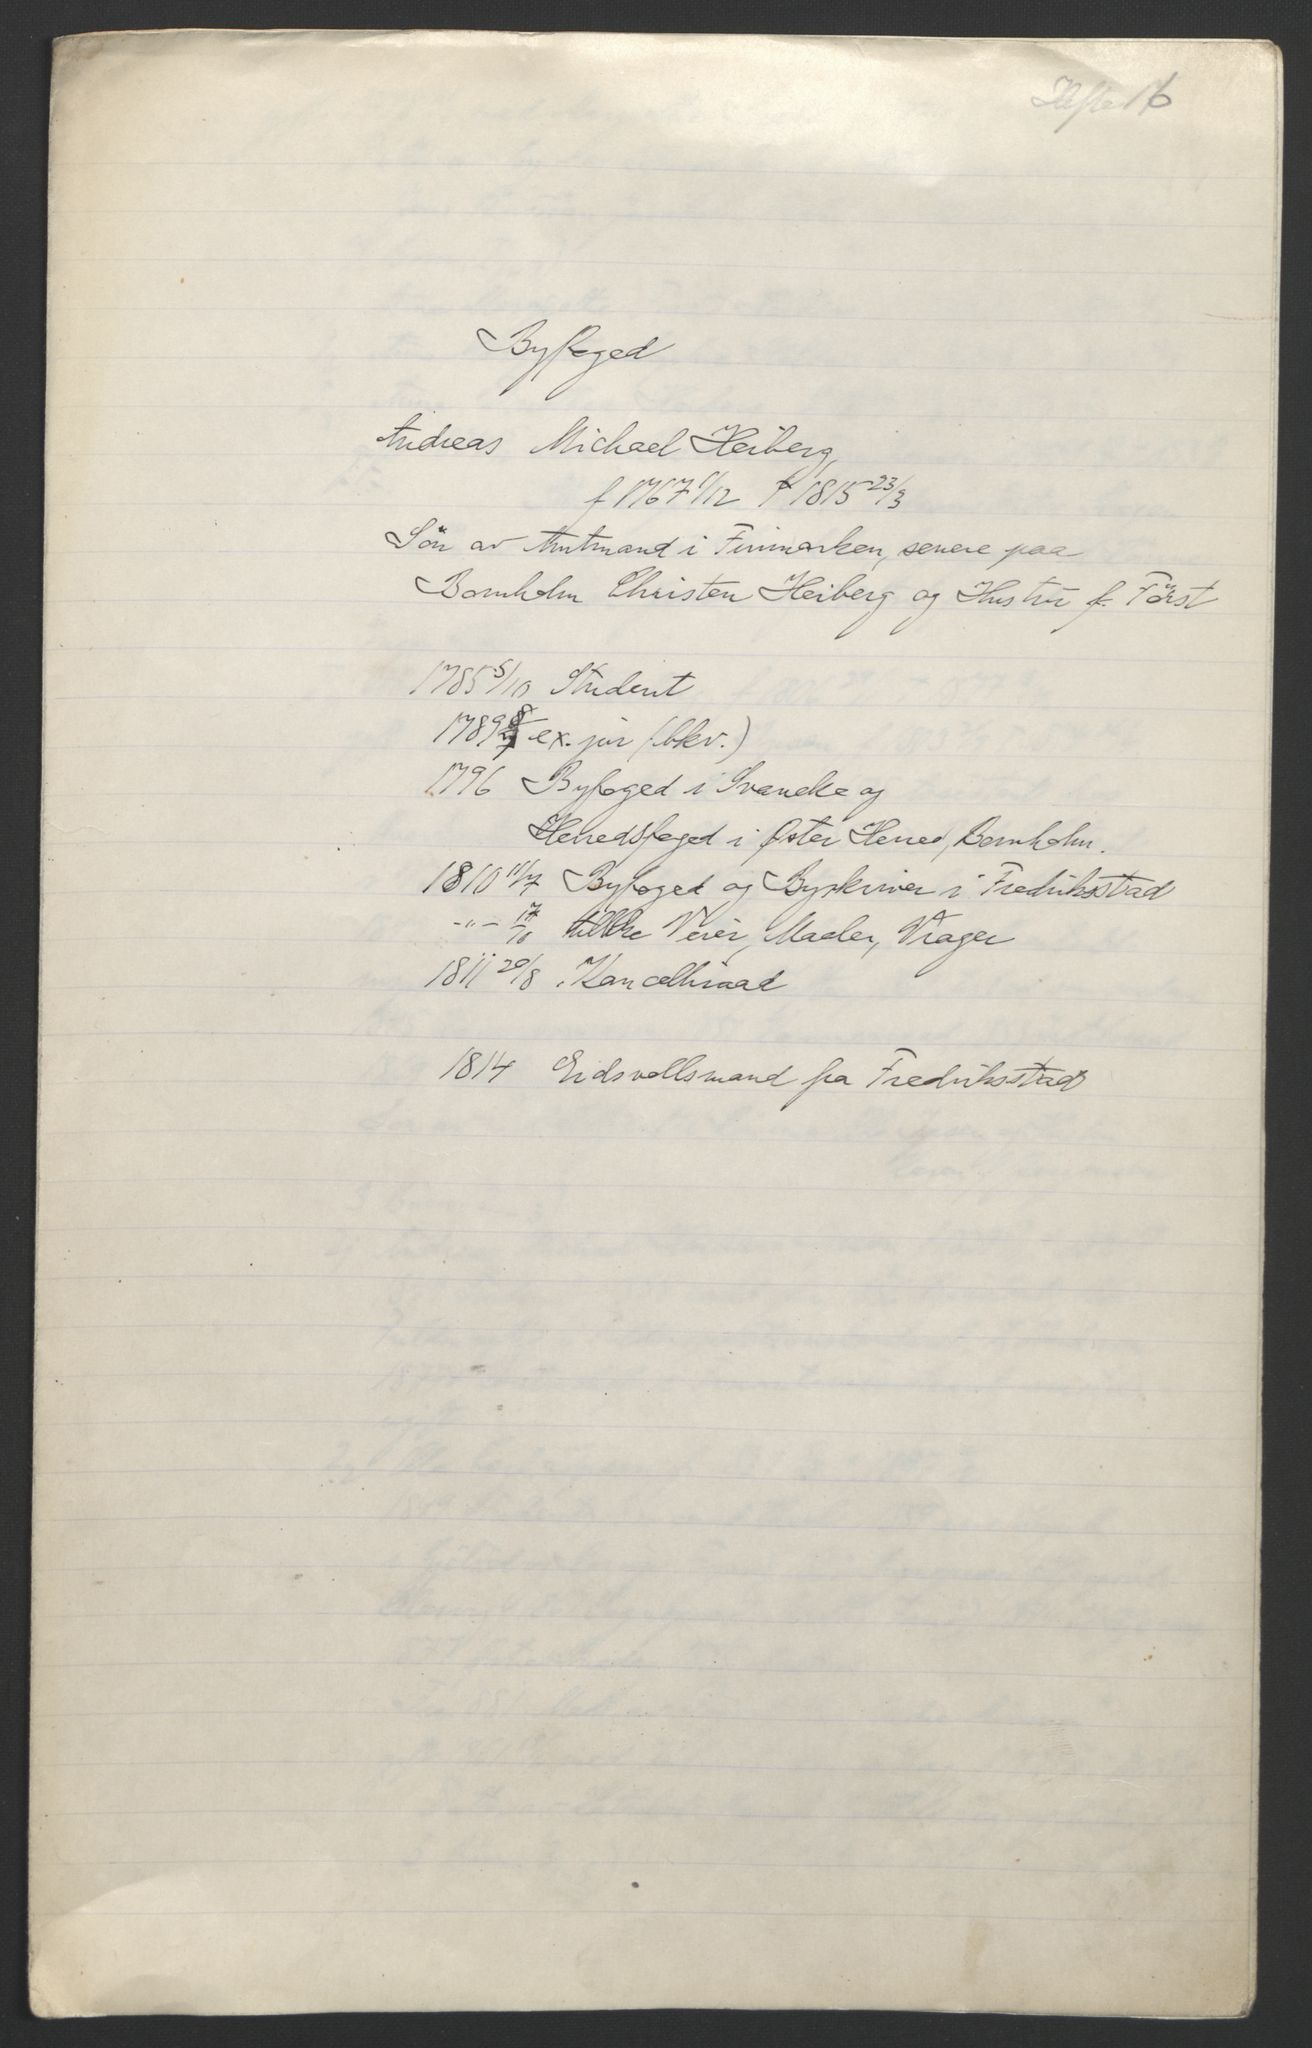 Hefte 16
Byfoged
Andreas Michael Heiberg,
f 1767 1/12 † 1815 23/3
Sön av Amtmand i Finmarken, senere paa
Bornholm Christen Heiberg og Hustru f. Fürst
1785 5/10 Student
1789 ex. jur (bkv.)
1796 Byfoged i Svaneke og
Herredsfoged i Øster Herred, Bornholm.
1810 11/7 Byfoged og Byskriver i Fredriksstad
-"- 17/10 tillike Veier, Maaler, Vrager
1811 20/8 Kancelliraad
1814 Eidsvollsmand fra Fredriksstad